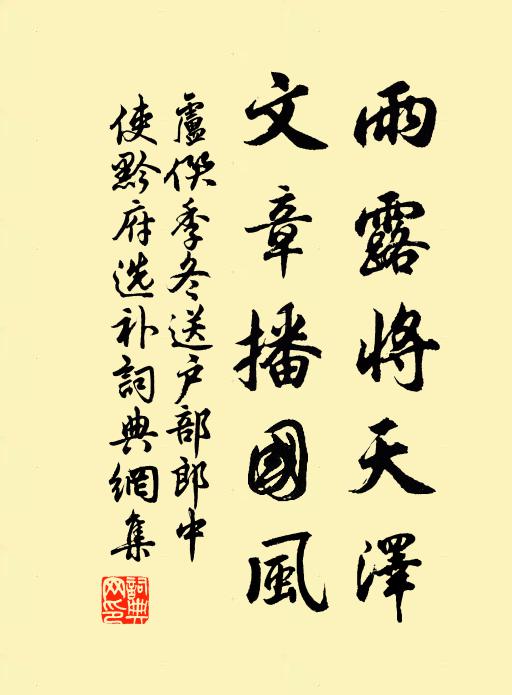 雨露將天澤
文章播國風
盧僎季冬送户部郎中
使黔府选补詞典網集
詞典網印